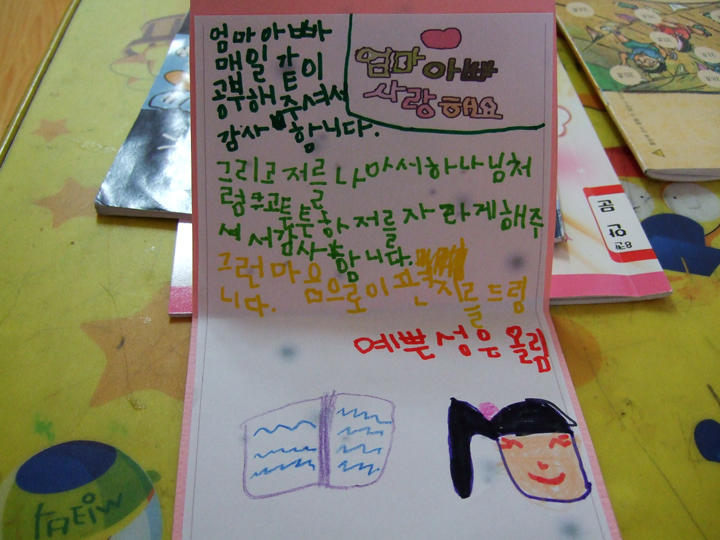 엄마아빠
매일 같이
공부해 주셔서
감사 합니다.
엄마 아빠
사랑해요
그리고 저를 나아서하나님처
럼 무교 를
튼튼하 저를 자라게해주
셔서감사 합니다.
그런마음으로이 편 지를드림
니다.
예쁜성은 올림
곰 공